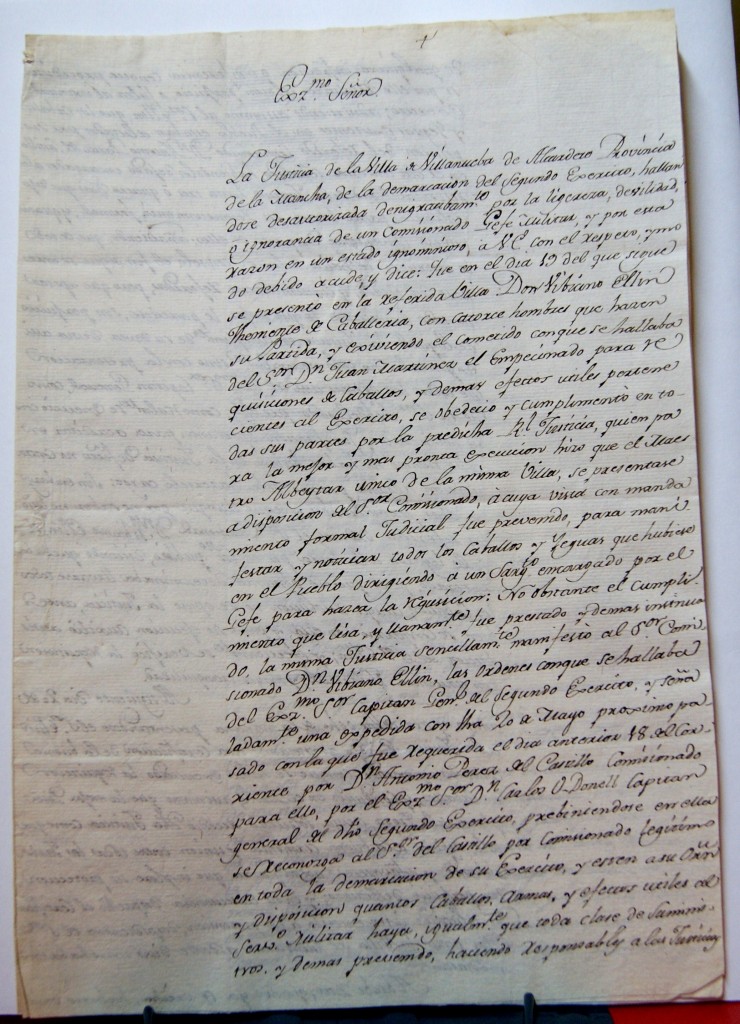 +
Exmo. Señor
La Justicia de la Villa de Villanueba de Alcardete Provincia
de la Mancha, de la demarcacion del Segundo Exercito, hallan
dose desautorizada denigratibamte. por la ligereza, devilidad,
o ignorancia de un Comisionado Gefe Militar, y por esta
razon en un estado ignominioso, a VE. con el respeto, y mo
do debido acude, y dice: Que en el dia 19 del que sigue
se presentó en la referida Villa Don Vibiano Ellin
Theniente de Caballeria, con catorce hombres que hacen
su Partida, y exiviendo el cometido conque se hallaba
del Sor. Dn. Juan Martinez el Empecinado para re
quisiciones de Caballos, y demas efectos utiles pertene
cientes al Exercito, se obedecio y cumplimentó en to
das sus partes por la predicha Rl. Justicia, quien pa
ra la mejor y mas pronta execucion hizo que el Maes
tro Albeytar unico de la misma Villa, se presentase
a disposicion del Sor. Comisionado, à cuya vista con manda
miento formal Judicial fue prevenido, para mani
festar y noticiar todos los Caballos y Yeguas que hubiese
en el Pueblo dirigiendo à un Sargto. encargado por el
Gefe para hacer la requisicion: No obstante el cumpli
miento que lisa, y llanamte. fue prestado, y demas insinua
do, la misma Justicia sencillamte. manifestó al Sor. Comi
sionado Dn. Vibiano Ellin, las ordenes conque se hallaba
del Exmo. Sor. Capitan Genl. del Segundo Exercito, y seña
ladamte. una expedida con fha 20 de Mayo proximo pa
sado con la que fue requerida el dia anterior 18 del Cor
riente por Dn. Antonio Perez del Castillo Comisionado
para ello, por el Exmo. Sor. Dn. Carlos O-Donell Capitan
general del dho Segundo Exercito, prebiniendose en ella
se reconozca al Sor. del Castillo por Comisionado legitimo
en toda la demarcacion de su Exercito, y esten a su orn.
y disposicion quantos Caballos, Armas, y efectos utiles al
Servo. Militar haya, igualmte. que toda clase de Suminis-
tros, y demas prevenido, haciendo responsables a las Justicias